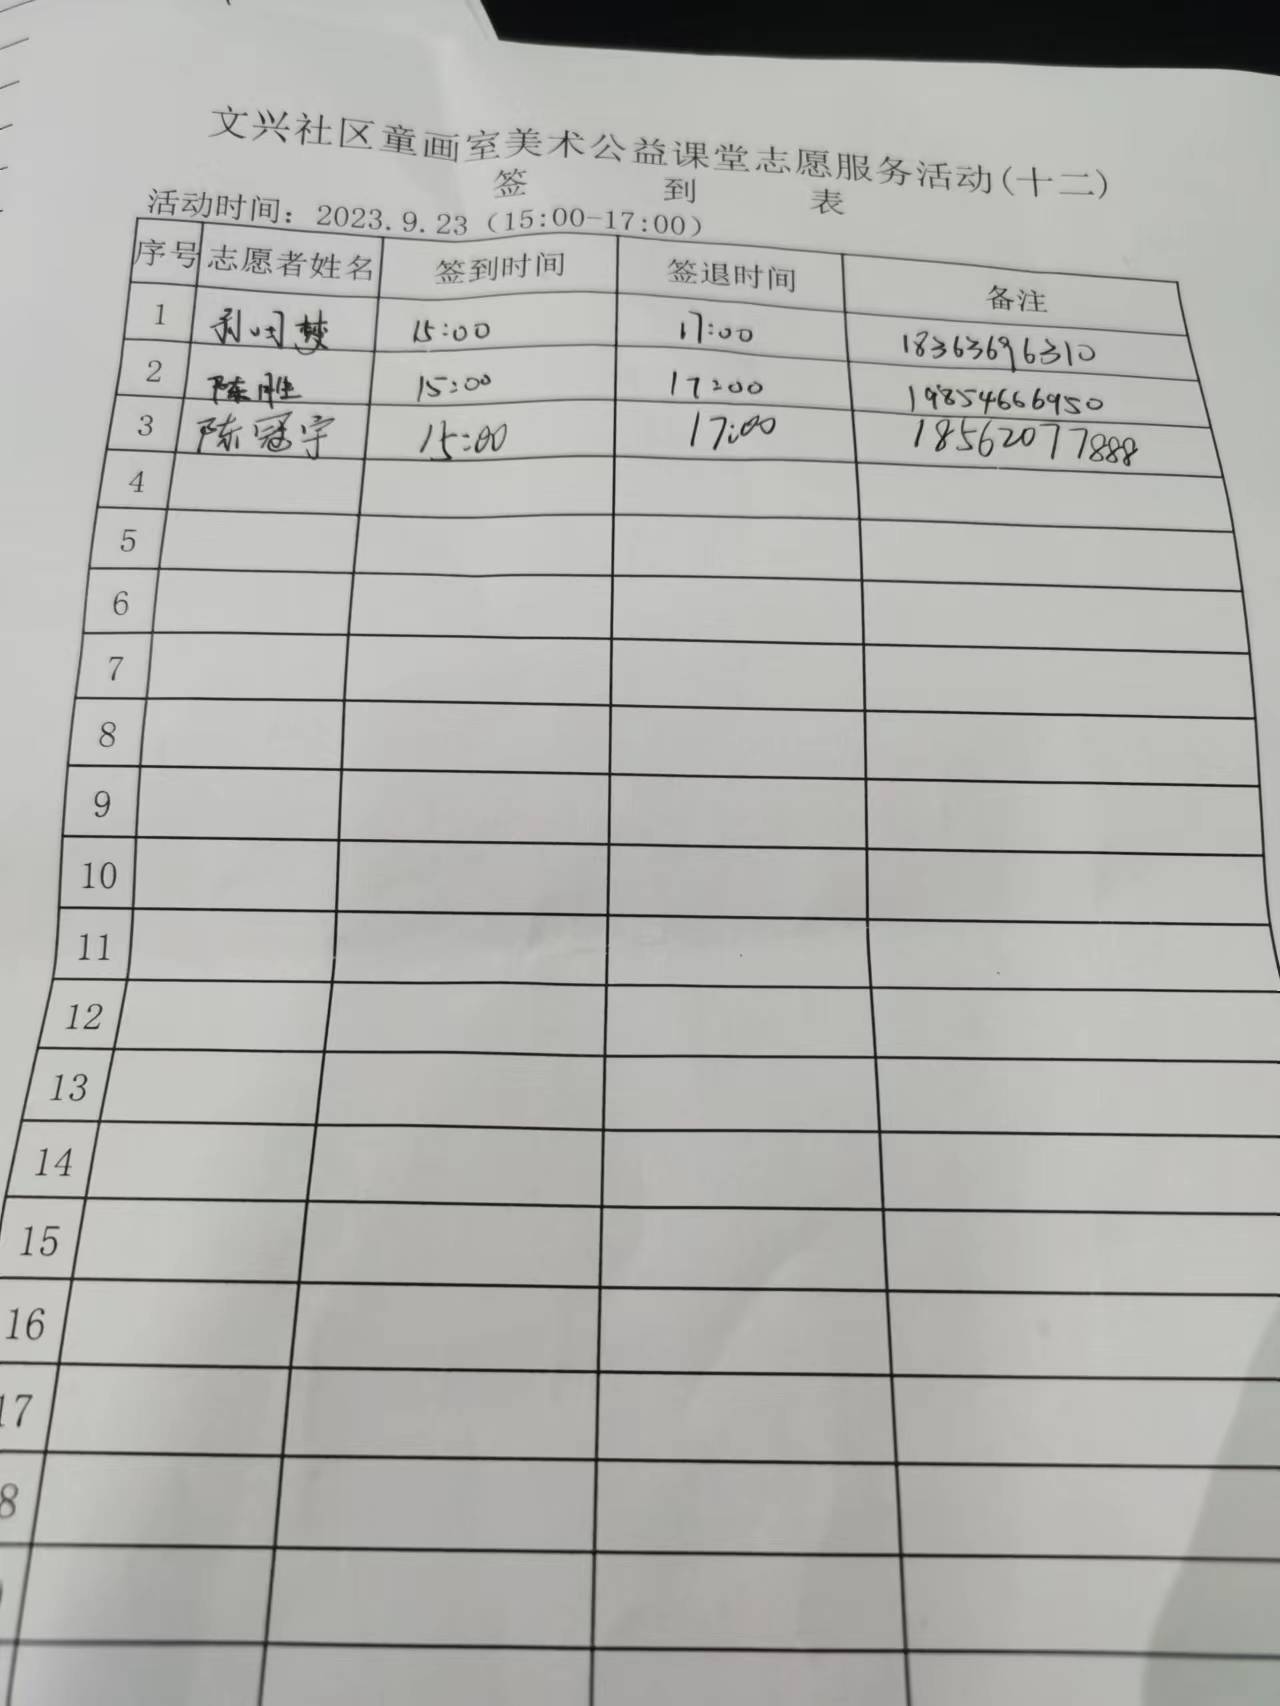 文兴社区童画室美术公益课堂志愿服务活动(十二)
签 到 表
活动时间：2023.9.23（15:00-17:00）
序号 志愿者姓名 签到时间 签退时间 备注
1 梦 15:00 17:00 18363696310
2 陈胜 15:00 17:00 19854666950
3 陈冠宇 15:00 17:00 18562077888
4
5
6
7
8
9
10
11
12
13
14
15
16
17
8